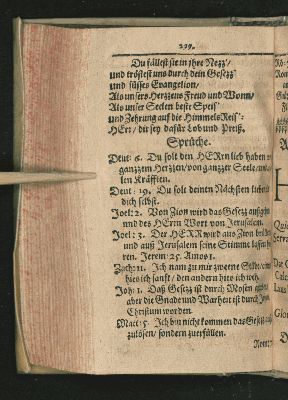 239.
Du füllest sie in jhre Hertz/
und tröstest uns durch dein Gesetz
und süsses Evangelion/
Als unsers Hertzens Freud und Wonn/
Als unser Seelen beste Speis'
und Zehrung auf die Himmels Reis':
HErr/ dir sey dafür Lob und Preiß.
Sprüche.
Deut: 6. Du solt den HErrn lieb haben
gantzem Hertzen/ von gantzer Seele/
len Kräfften.
Deut: 19. Du solt deinen Nächsten lieben
dich selbst.
Joel: 2. Von Zion wird das Gesetz
und des HErrn Wort von Jerusalem.
Joel: 3. Der HERR wird aus Zion
und auß Jerusalem seine Stimme lassen
ren. Jerem: 25. Amos 1.
Zach: 11. Ich nam zu mir zweene Stäbe/
hies ich sanft/ den andern hies ich weh.
Joh: 1. Das Gesetz ist durch Mosen
aber die Gnade und Warheit ist durch
Christum worden.
Matt: 5. Ich bin nicht kommen das Gesetz
zulösen/ sondern zuerfüllen.
Rom: